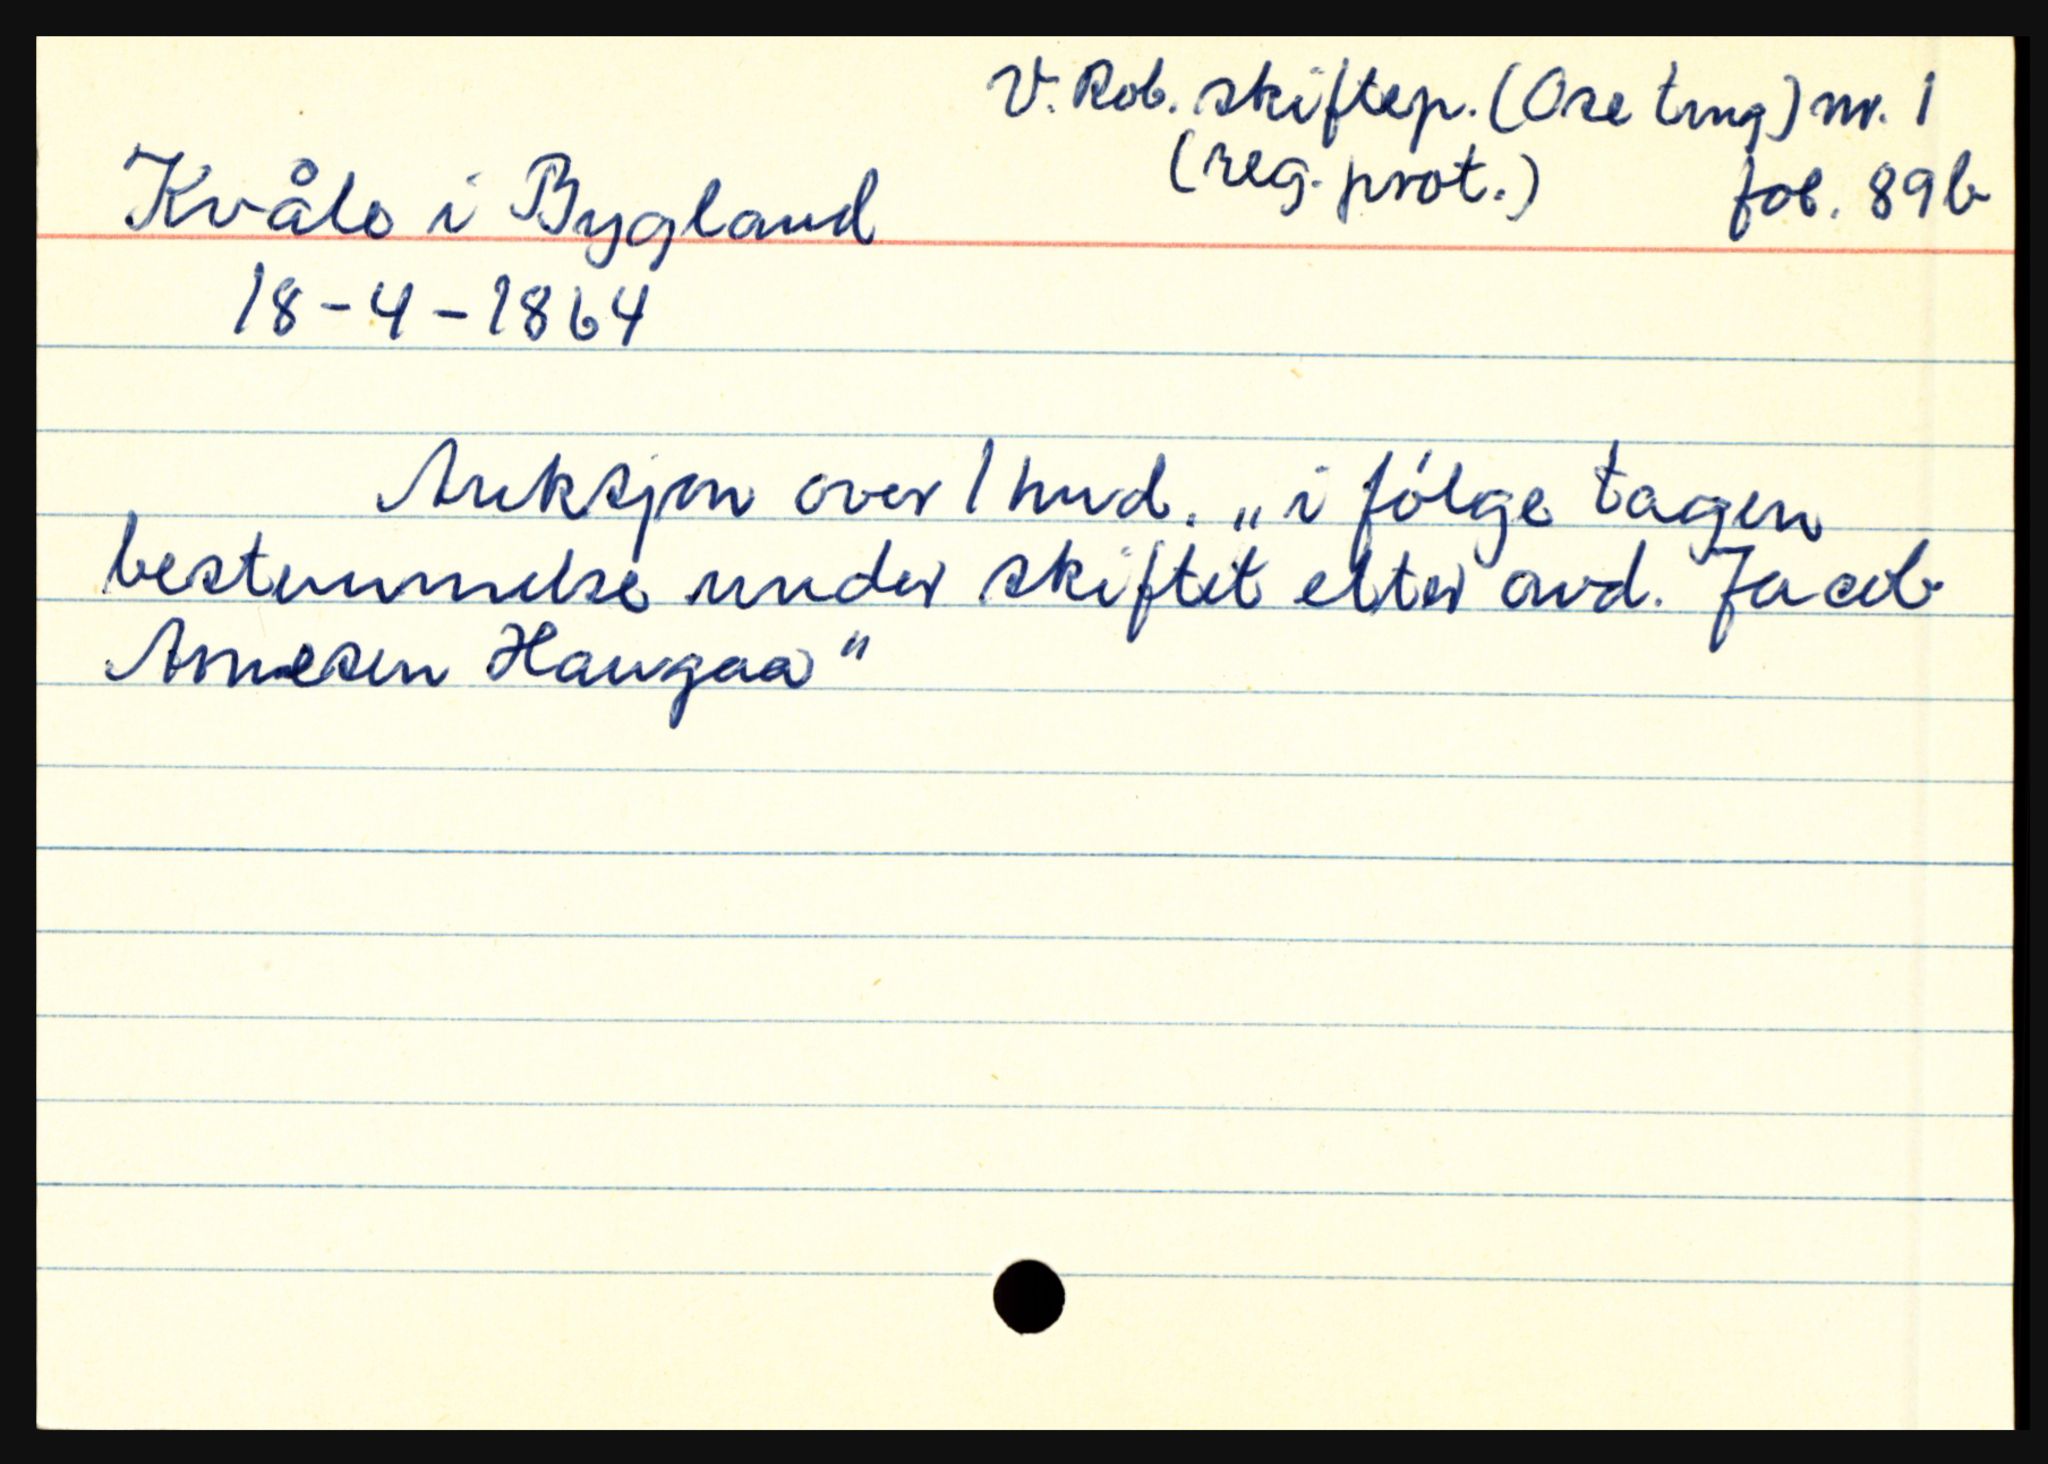 V. Rob. skiftep. (Ose ting) nr. 1
(reg. prot.) fol. 89b
Kvåle i Bygland
18-4-1864
Auksjon over 1 hud. „i følge tagen
bestemmelse under skiftet efter avd. Jacob
Arnesen Haugaa"